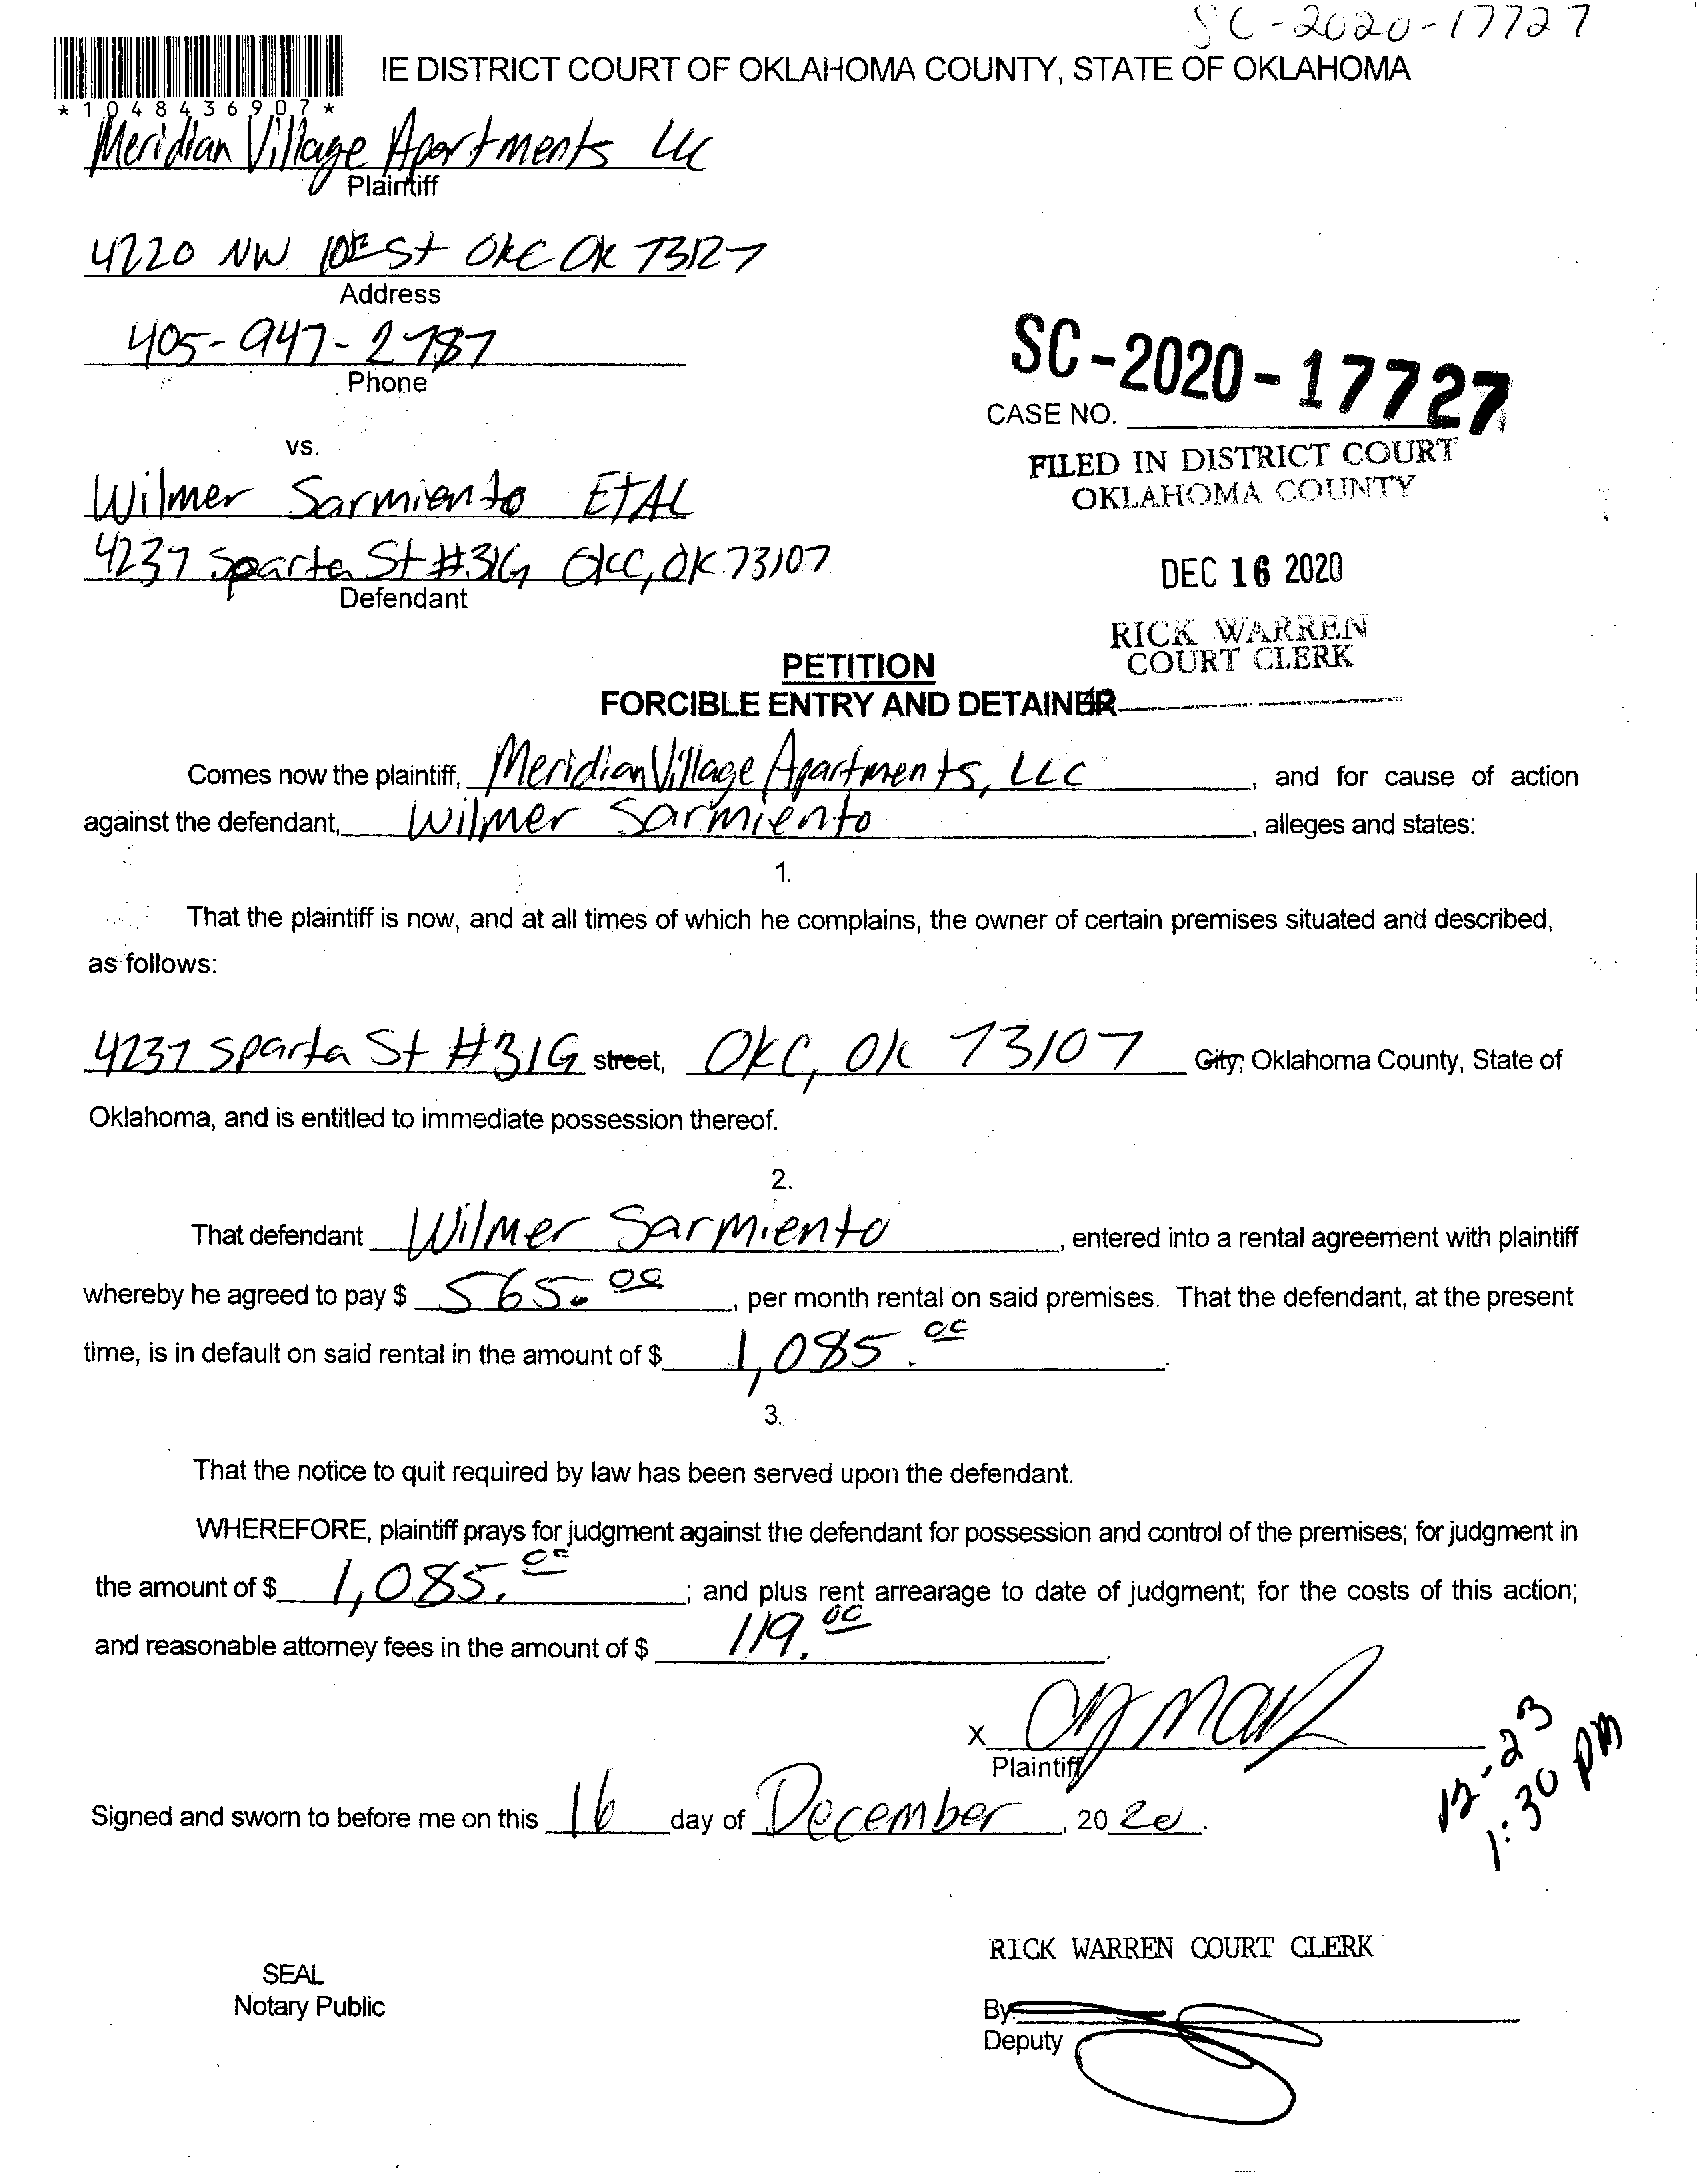 SC-2020-17727
IE DISTRICT COURT OF OKLAHOMA COUNTY, STATE OF OKLAHOMA
*1048436907*
Meridian Village Apartments LLC
Plaintiff
4220 NW 10th St OKC OK 73127
Address
405-947-2787
Phone
SC-2020-17727
CASE NO.
vs.
FILED IN DISTRICT COURT
OKLAHOMA COUNTY
Wilmer Sarmiento ETAL
4237 Sparta St #31G OKC, OK 73107
Defendant
DEC 16 2020
RICK WARREN
COURT CLERK
PETITION
FORCIBLE ENTRY AND DETAINER
Comes now the plaintiff, Meridian Village Apartments, LLC, and for cause of action
against the defendant, Wilmer Sarmiento, alleges and states:
1.
That the plaintiff is now, and at all times of which he complains, the owner of certain premises situated and described,
as follows:
4237 Sparta St #31G street, OKC, OK 73107 City, Oklahoma County, State of
Oklahoma, and is entitled to immediate possession thereof.
2.
That defendant Wilmer Sarmiento, entered into a rental agreement with plaintiff
whereby he agreed to pay $ 565.00, per month rental on said premises. That the defendant, at the present
time, is in default on said rental in the amount of $ 1,085.00.
3.
That the notice to quit required by law has been served upon the defendant.
WHEREFORE, plaintiff prays for judgment against the defendant for possession and control of the premises; for judgment in
the amount of $ 1,085.00; and plus rent arrearage to date of judgment; for the costs of this action;
and reasonable attorney fees in the amount of $ 119.00.
X
Plaintiff
12-23
1:30 PM
Signed and sworn to before me on this 16 day of December, 2020.
RICK WARREN COURT CLERK
SEAL
Notary Public
By
Deputy